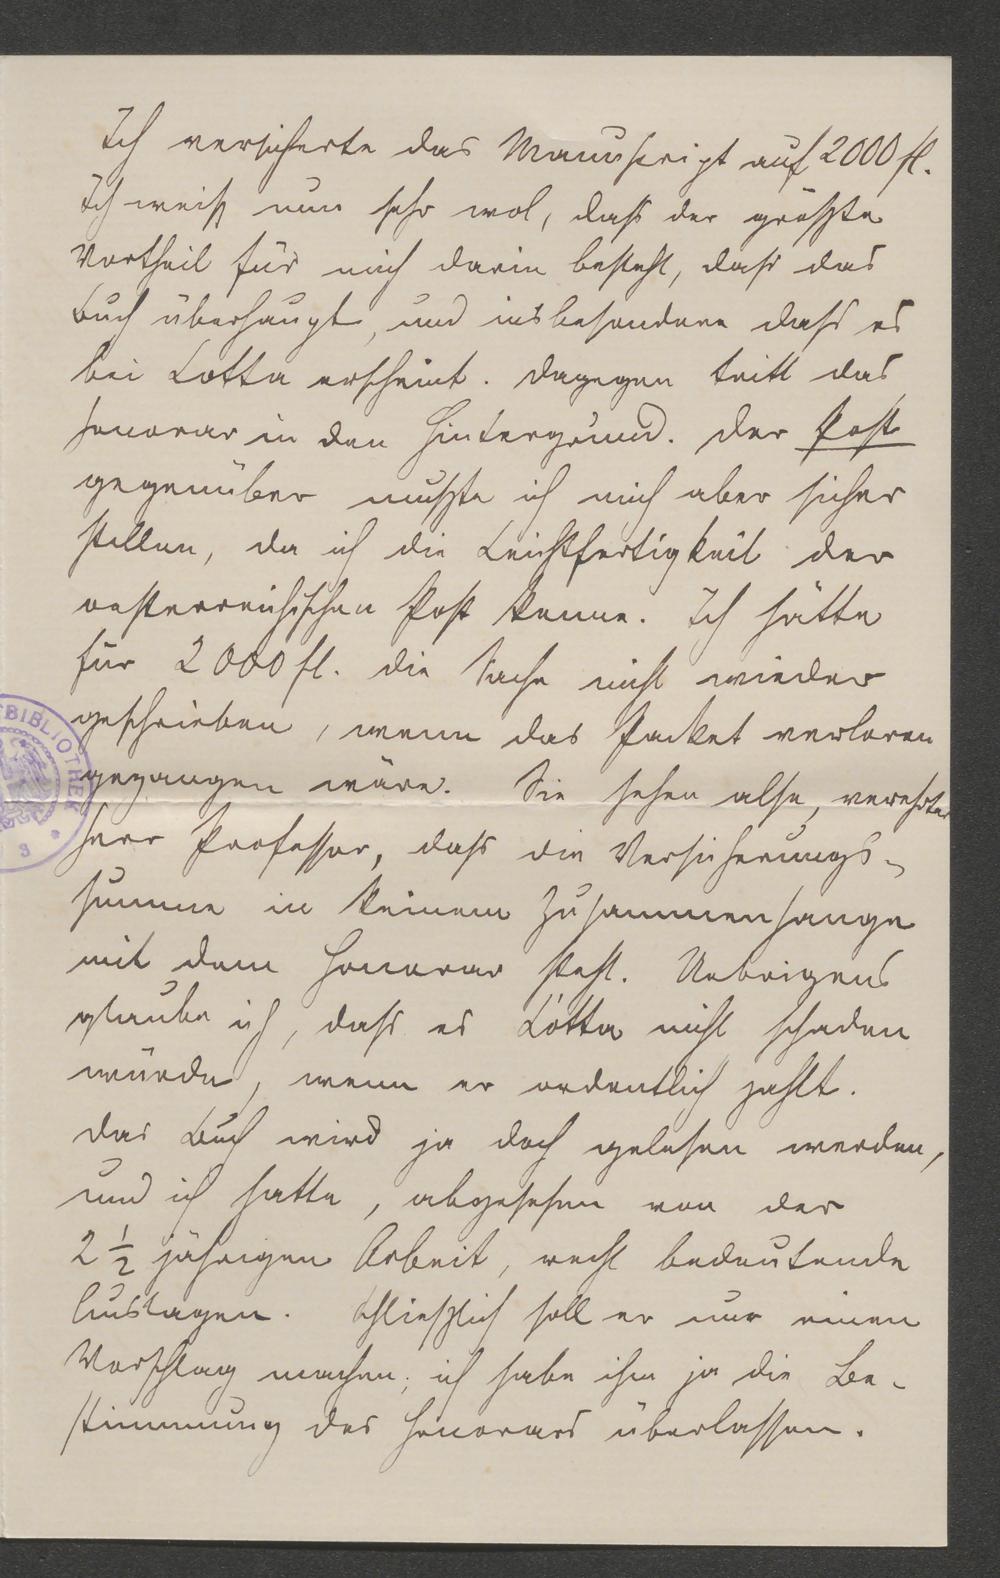 Ich versicherte das Manuscript auf 2000 fl.
Ich weiß nun sehr wol, dass der größte
Vortheil für mich darin besteht, dass das
Buch überhaupt, und insbesondere dass es
bei Cotta erscheint. Dagegen tritt das
Honorar in den Hintergrund. Der Post
gegenüber mußte ich mich aber sicher
stellen, da ich die Leichtfertigkeit der
oesterreichischen Post kenne. Ich hätte
für 2000 fl. die Sache nicht wieder
geschrieben, wenn das Packet verloren
gegangen wäre. Sie sehen also, verehrter
Herr Professor, dass die Versicherungs-
summe in keinem Zusammenhange
mit dem Honorar steht. Uebrigens
glaube ich, dass es Cotta nicht schaden
würde, wenn er ordentlich zahlt.
Das Buch wird ja doch gelesen werden,
und ich hatte, abgesehen von der
2 1/2 jährigen Arbeit, recht bedeutende
Auslagen. Schließlich soll er nur einen
Vorschlag machen; ich habe ihm ja die Be-
stimmung des Honorars überlassen.
BIBLIOTHEK